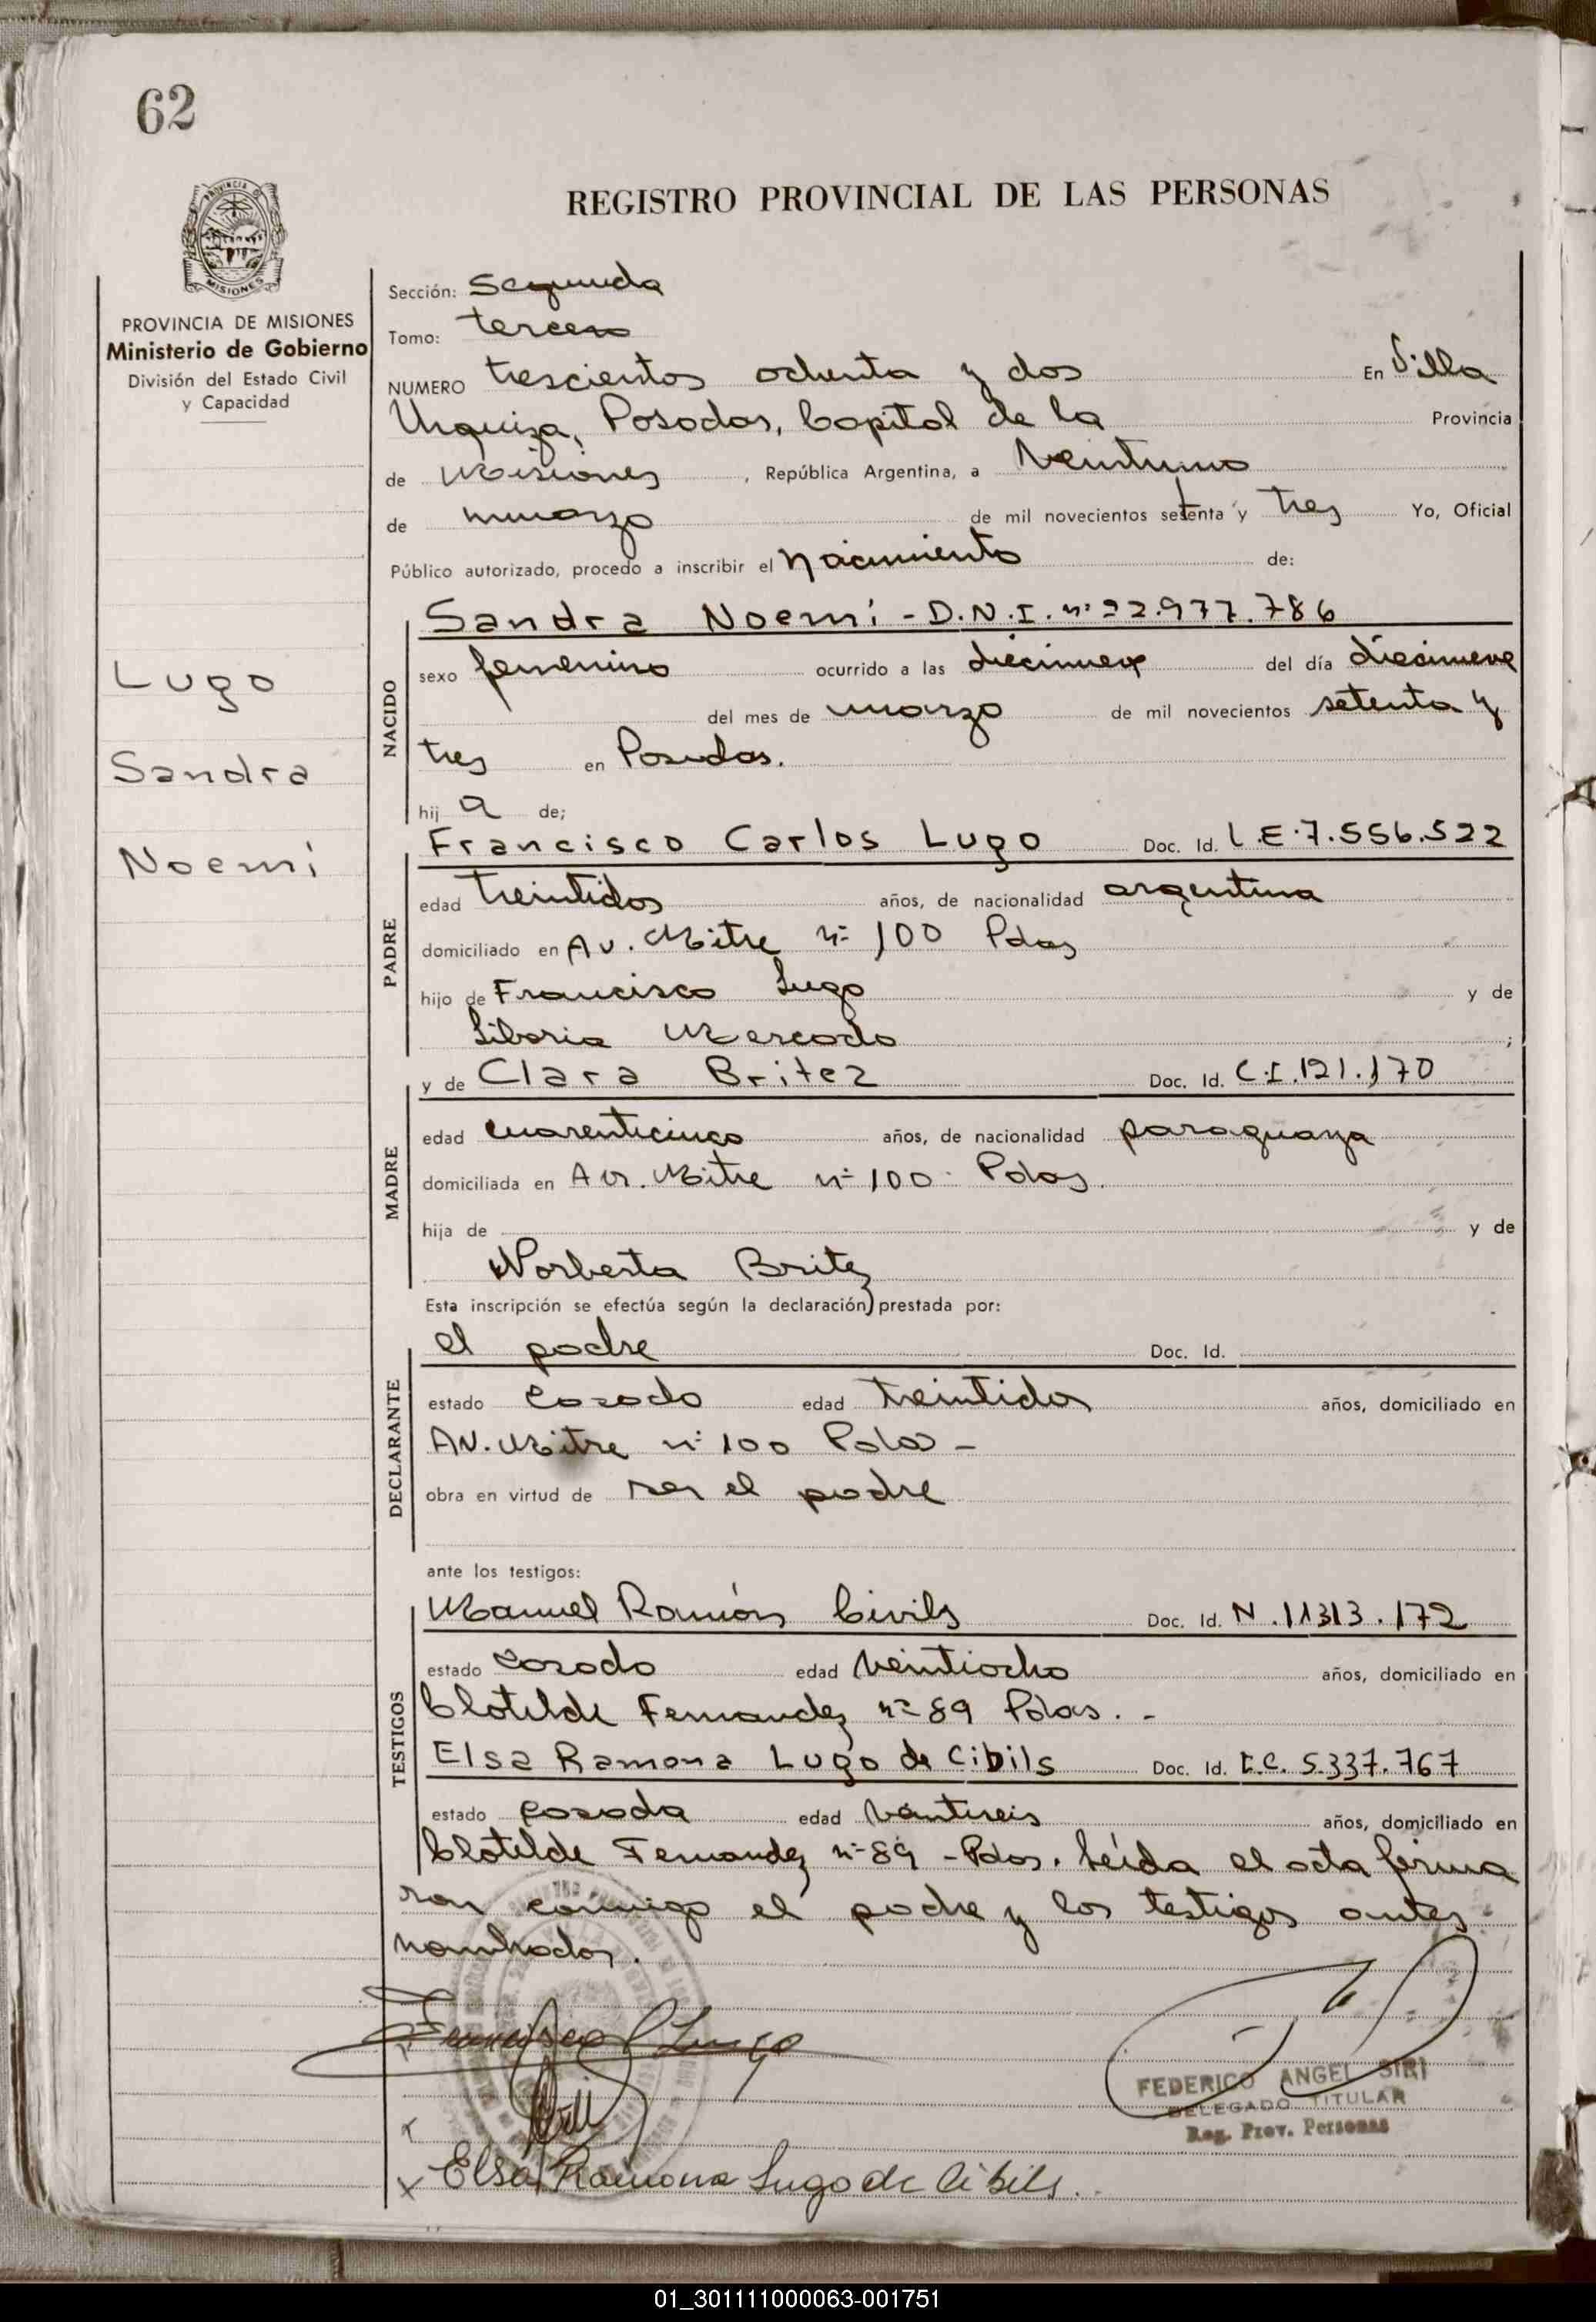 62
REGISTRO PROVINCIAL DE LAS PERSONAS
PROVINCIA DE MISIONES
Ministerio de Gobierno
División del Estado Civil
y Capacidad
Lugo
Sandra
Noemí
Sección: Segunda
Tomo: tercero
NUMERO trescientos ochenta y dos En Villa
Urquiza, Posadas, Capital de la Provincia
de Misiones, República Argentina, a Veintiuno
de marzo de mil novecientos setenta y tres Yo, Oficial
Público autorizado, procedo a inscribir el nacimiento de:
NACIDO
Sandra Noemí - D.N.I. nº 22.977.786
sexo femenino ocurrido a las diecinueve del día diecinueve
del mes de marzo de mil novecientos setenta y
tres en Posadas.
hij a de;
PADRE
Francisco Carlos Lugo Doc. Id. L.E.7.556.522
edad treintidos años, de nacionalidad argentina
domiciliado en Av. Mitre nº 100 Pdas
hijo de Francisco Lugo y de
Liboria Mercado ;
MADRE
y de Clara Britez Doc. Id. C.I.121.170
edad cuarenticinco años, de nacionalidad paraguaya
domiciliada en Av. Mitre nº 100 Pdas.
hija de y de
Norberta Britez
Esta inscripción se efectúa según la declaración prestada por:
DECLARANTE
el padre Doc. Id.
estado casado edad treintidos años, domiciliado en
Av. Mitre nº 100 Pdas -
obra en virtud de ser el padre
ante los testigos:
TESTIGOS
Manuel Ramón Civils Doc. Id. N.11313.172
estado casado edad veintiocho años, domiciliado en
Clotilde Fernandez nº 89 Pdas. -
Elsa Ramona Lugo de Cibils Doc. Id. 5.337.767
estado casada edad años, domiciliado en
Clotilde Fernandez nº 89 - Pdas. Leída el acta firma
ron conmigo el padre y los testigos antes
nombrados.
Francisco C Lugo
FEDERICO ANGEL SIRI
DELEGADO TITULAR
Reg. Prov. Personas
x Elsa Ramona Lugo de Cibils.
01_301111000063-001751